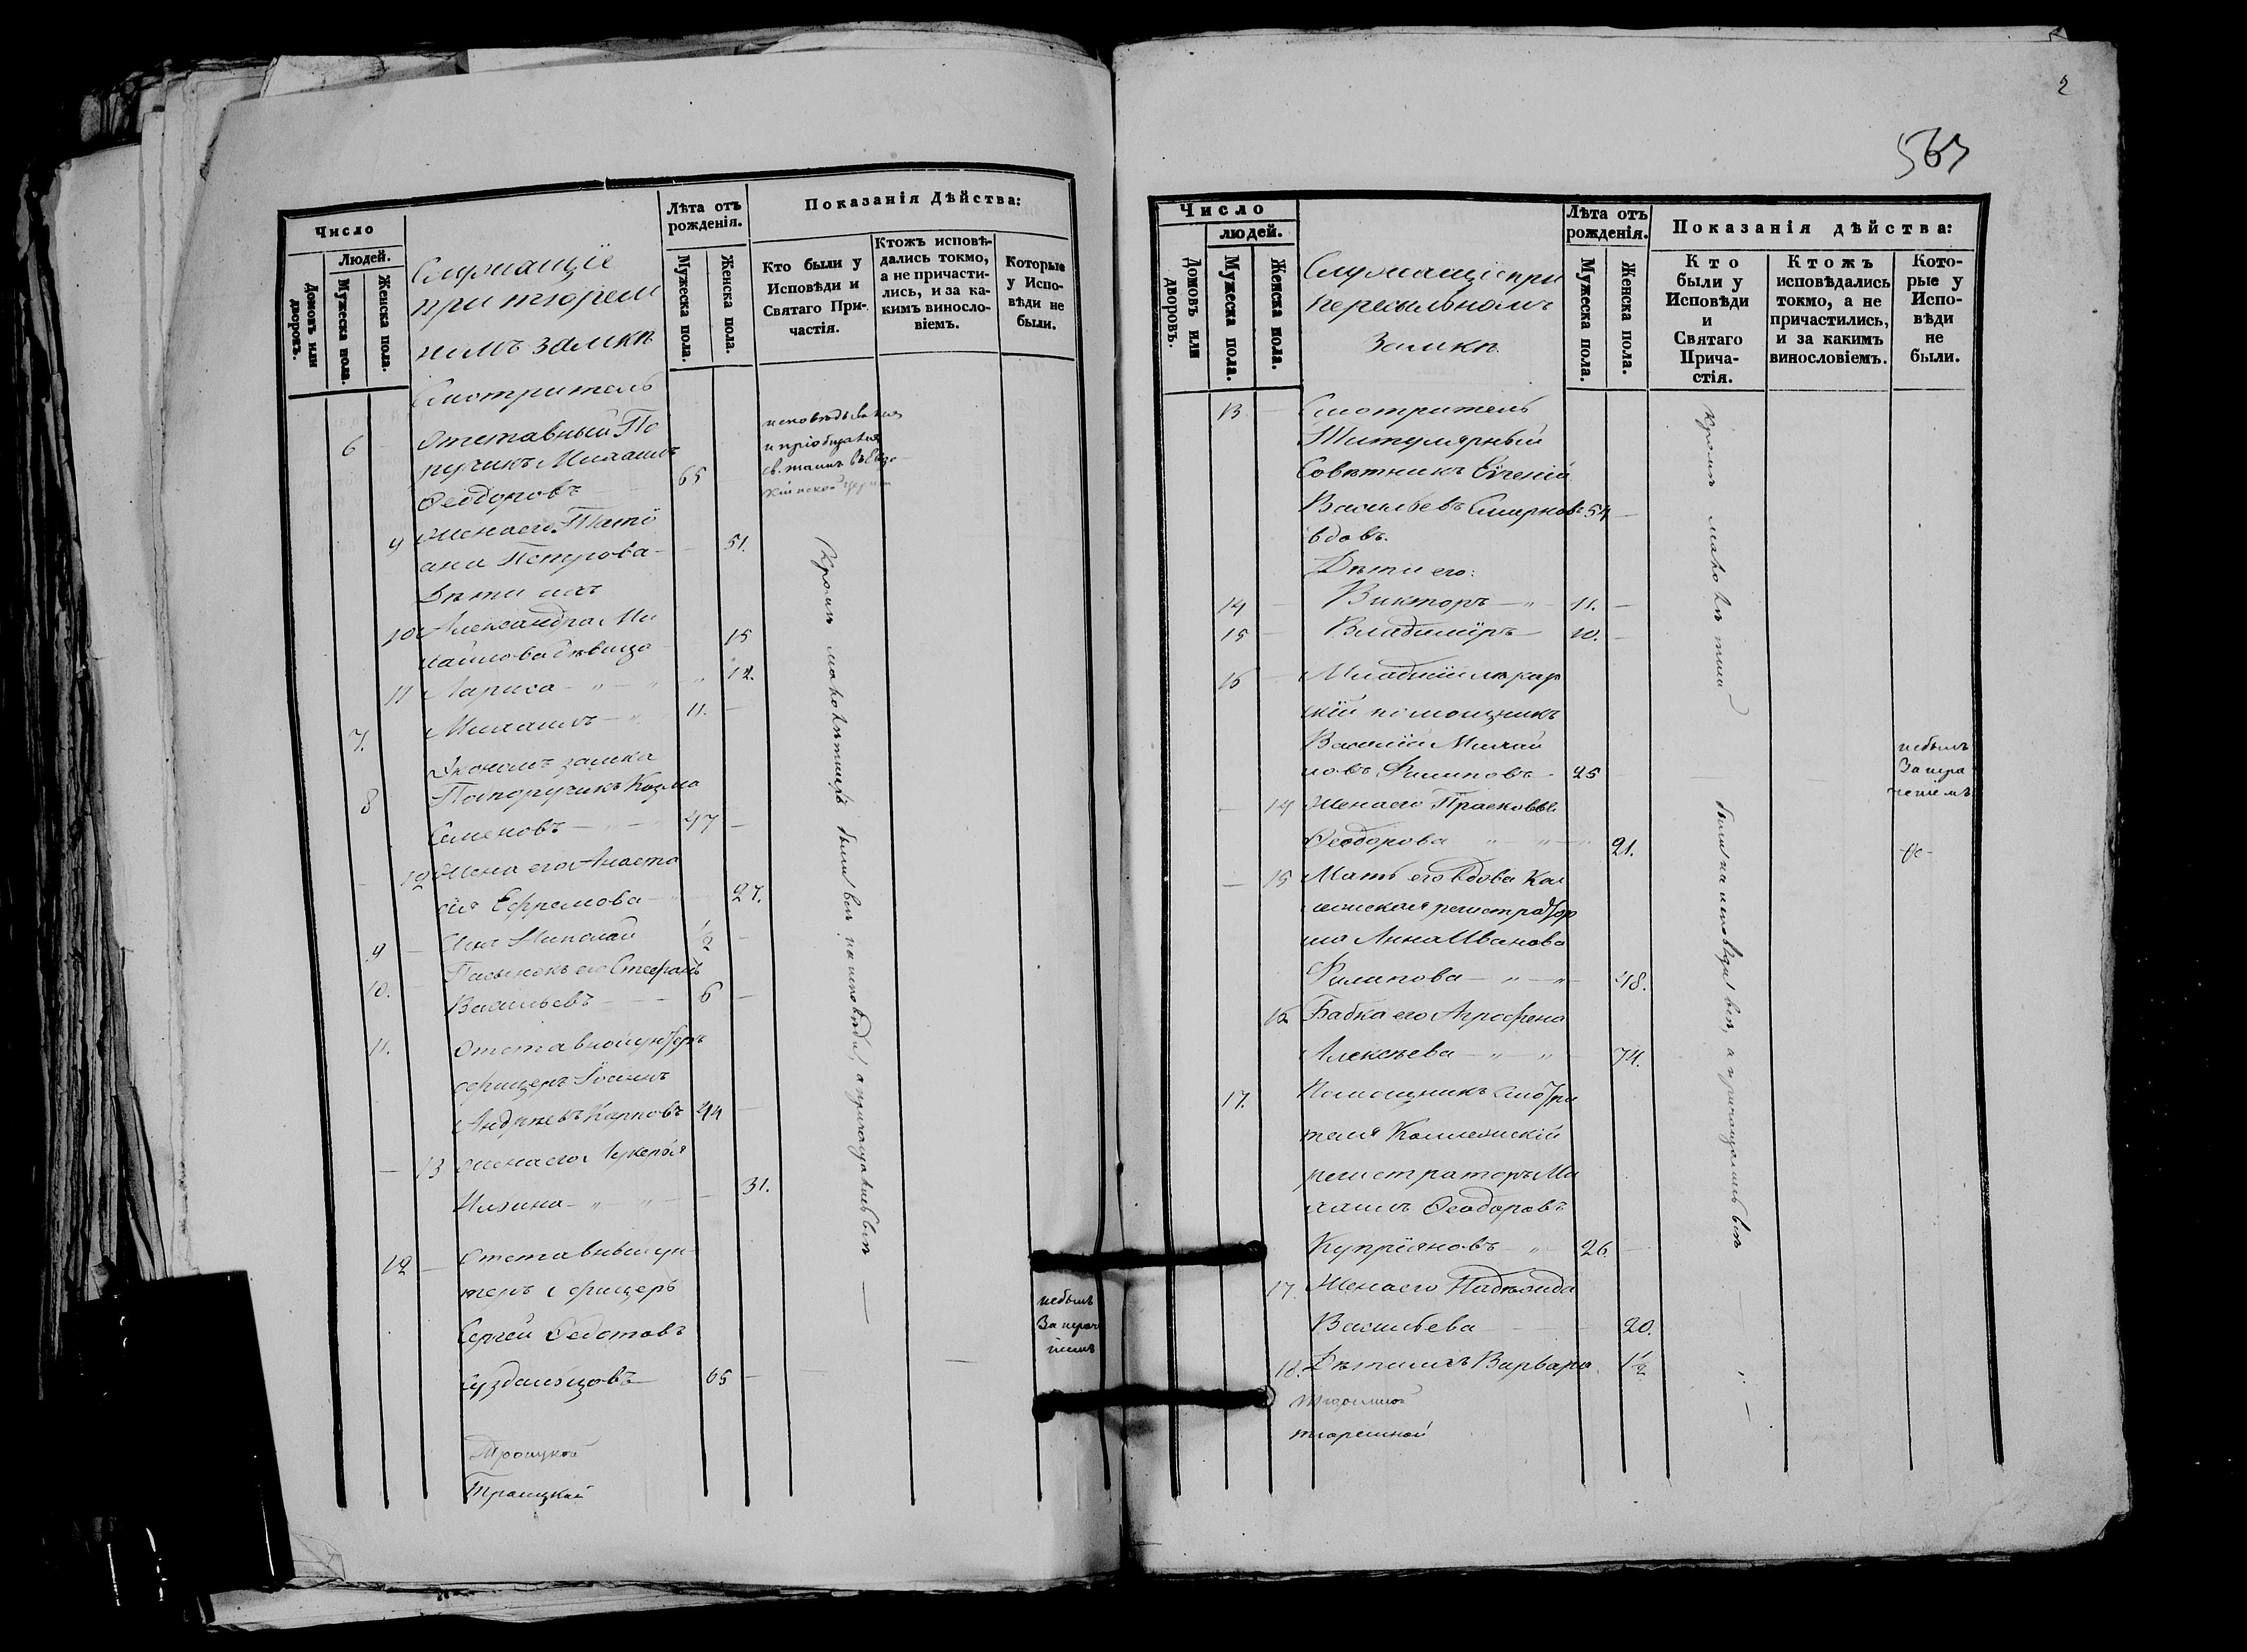 Число
Людей.
Домовъ или дворовъ.
Мужеска пола.
Женска пола.
Служащіе
при тюрем
номъ замкѣ
Лѣта отъ рожденія.
Мужеска пола.
Женска пола.
Показанія Дѣйства:
Кто были у Исповѣди и Святаго Причастія.
Ктожъ исповѣдались токмо, а не причастились, и за какимъ винословіемъ.
Которые у Исповѣди не были.
Смотритель
6 Отставный По
ручикъ Михаилъ
Ѳеодоровъ 65
исповѣдывался
и пріобщался
св. таинъ въ
9 Жена его Татї
ана Петрова 51.
Дѣти ихъ
10 Александра Ми
хайлова дѣвица 15
11 Лариса — " — " " 12.
7. Михаилъ — " 11. —
Экономъ замка
8 Подпоручикъ Козма
Семеновъ — " — 47 —
12 Жена его Анаста
сія Ефремова — 27.
9 — Сынъ Николай ½ —
10. — Пасынокъ его Стефанъ
Васильевъ — — — 6 —
11. Отставной унтеръ
офицеръ Іоаннъ
Андреевъ Карповъ 44 —
— 13 Жена его Лукерья
Ильина — " — " — — 31.
12 — Отставный ун
теръ офицеръ
Сергей Ѳедотовъ
Суздальцовъ 65 —
небылъ
За
Кромѣ малолѣтнихъ были всѣ на исповѣди, а причащались всѣ —
Троицкой
Троицкой
2
563
Число
людей.
Домовъ или дворовъ.
Мужеска пола.
Женска пола.
Служащіе при
пересыльномъ
Замкѣ.
Лѣта отъ рожденія.
Мужеска пола.
Женска пола.
Показанія дѣйства:
Кто были у Исповѣди и Святаго Причастія.
Ктожъ исповѣдались токмо, а не причастились, и за какимъ винословіемъ.
Которые у Исповѣди не были.
13 — Смотритель
Титулярный
Совѣтникъ Евгеній
Васильевъ Смирновъ 54 —
вдовъ.
Дѣти его:
14 — Викторъ — " — 11. —
15 — Владиміръ — 10. —
16 — Младшій лѣкар
скій помощникъ
Василій Михай
ловъ Филиповъ — 25 —
небылъ
За
— 14 Жена его Прасковья
Ѳеодорова " — " — 21.
— 15 Мать его вдова Кол
лежская регистратор
ша Анна Иванова
Филипова — " — " — 48.
16 Бабка его Агрофена
Алексѣева — " — " — 74.
17. Помощникъ смотри
теля Коллежскій
регистраторъ Ми
хаилъ Ѳеодоровъ
Купріяновъ — " — 26. —
17. Жена его Надежда
Васильева — — 20.
18. Дѣти ихъ Варвара. 1½
Кромѣ малолѣтнихъ были на исповѣди всѣ, а причащались всѣ
тюремной
тюремной